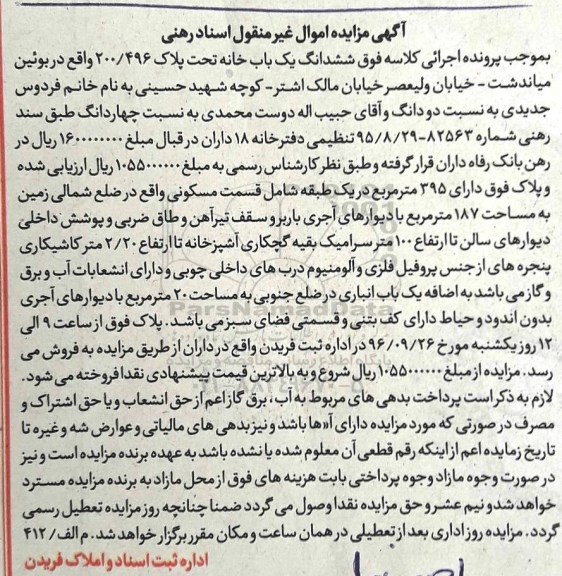 آگهی مزایده اموال غیر منقول اسناد رهنی
بموجب پرونده اجرائی کلاسه فوق ششدانگ یک باب خانه تحت پلاک ۲۰۰/۴۹۶ واقع در بوئین
میاندشت - خیابان ولیعصر خیابان مالک اشتر- کوچه شهید حسینی به نام خانم فردوس
جدیدی به نسبت دو دانگ و آقای حبیب اله دوست محمدی به نسبت چهاردانگ طبق سند
رهنی شماره ۸۲۵۶۳-۹۵/۸/۲۹ تنظیمی دفترخانه ۱۸ داران در قبال مبلغ ۱۶۰۰۰۰۰۰۰۰ ریال در
رهن بانک رفاه داران قرار گرفته و طبق نظر کارشناس رسمی به مبلغ ۱۰۵۵۰۰۰۰۰۰ ریال ارزیابی شده
و پلاک فوق دارای ۳۹۵ مترمربع در یک طبقه شامل قسمت مسکونی واقع در ضلع شمالی زمین
به مساحت ۱۸۷ مترمربع با دیوارهای آجری باربر و سقف تیرآهن و طاق ضربی و پوشش داخلی
دیوارهای سالن تا ارتفاع ۱۰۰ متر سرامیک بقیه گچکاری آشپزخانه تا ارتفاع ۲/۲۰ متر کاشیکاری
پنجره های از جنس پروفیل فلزی و آلومنیوم درب های داخلی چوبی و دارای انشعابات آب و برق
و گاز می باشد به اضافه یک باب انباری در ضلع جنوبی به مساحت ۲۰ مترمربع با دیوارهای آجری
بدون اندود و حیاط دارای کف بتنی و قسمتی فضای سبز می باشد. پلاک فوق از ساعت ۹ الی
۱۲ روز یکشنبه مورخ ۹۶/۰۹/۲۶ در اداره ثبت فریدن واقع در داران از طریق مزایده به فروش می
رسد. مزایده از مبلغ ۱۰۵۵۰۰۰۰۰۰ ریال شروع و به بالاترین قیمت پیشنهادی نقدا فروخته می شود.
لازم به ذکر است پرداخت بدهی های مربوط به آب، برق گاز اعم از حق انشعاب و یا حق اشتراک و
مصرف در صورتی که مورد مزایده دارای آ«ها باشد و نیز بدهی های مالیاتی و عوارض شه و غیره تا
تاریخ زمایده اعم از اینکه رقم قطعی آن معلوم شده یا نشده باشد به عهده برنده مزایده است و نیز
در صورت وجوه مازاد وجوه پرداختی بابت هزینه های فوق از محل مازاد به برنده مزایده مسترد
خواهد شد و نیم عشر و حق مزایده نقدا وصول می گردد ضمنا چنانچه روز مزایده تعطیل رسمی
گردد. مزایده روز اداری بعد از تعطیلی در همان ساعت و مکان مقرر برگزار خواهد شد. م الف/ ۴۱۲
اداره ثبت اسناد و املاک فریدن
ParsNamadData
پایگاه اطلاع رسانی مناقصه و مزایده